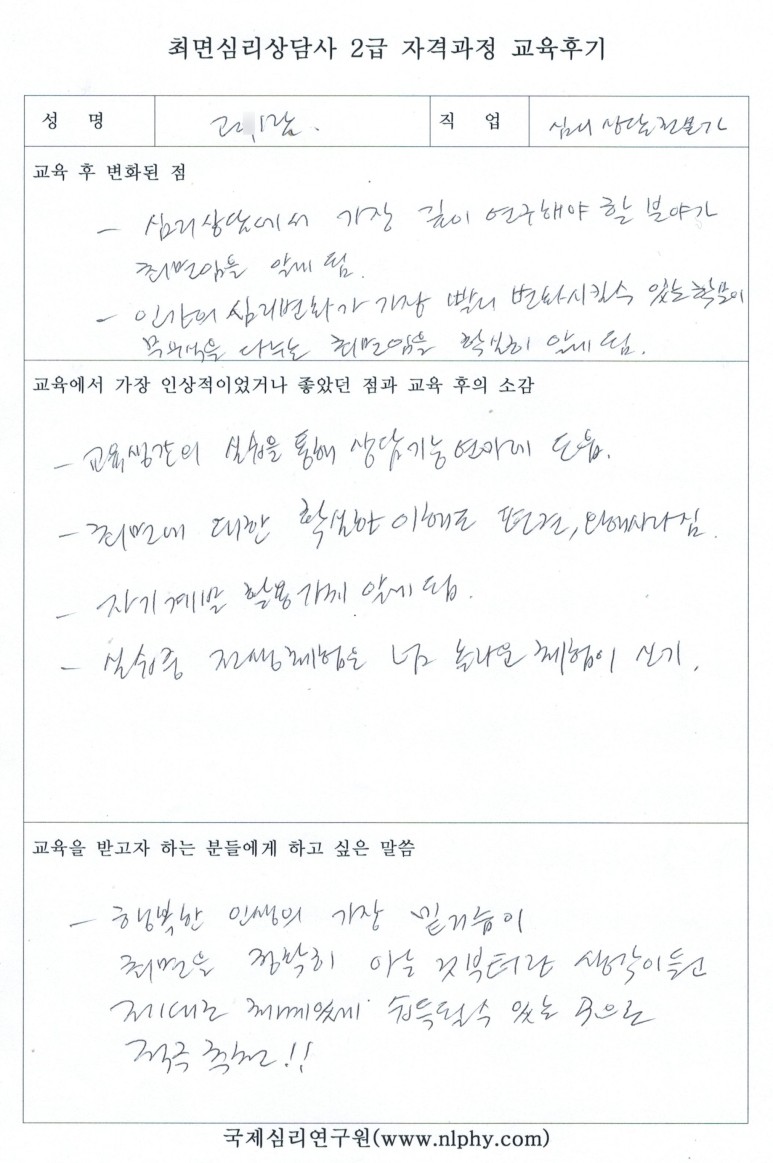 최면심리상담사 2급 자격과정 교육후기
성 명
직 업 심리상담전문가
교육 후 변화된 점
- 심리상담에서 가장 깊이 연구해야 할 분야가
최면임을 알게 됨.
- 인간의 심리변화가 가장 빨리 변화시킬수 있는 학문이
무의식을 다루는 최면임을 확실히 알게 됨.
교육에서 가장 인상적이었거나 좋았던 점과 교육 후의 소감
- 교육생간의 실습을 통해 상담기능 연마에 도움.
- 최면에 대한 확실한 이해로 편견, 오해사라짐.
- 자기계발 활용가치 알게 됨.
- 실습중 전생체험은 넘 놀라운 체험이 신기.
교육을 받고자 하는 분들에게 하고 싶은 말씀
- 행복한 인생의 가장 밑거름이
최면을 정확히 아는 것부터라 생각이들고
제대로 체계있게 습득될수 있는 곳으로
적극 추천!!
국제심리연구원(www.nlphy.com)